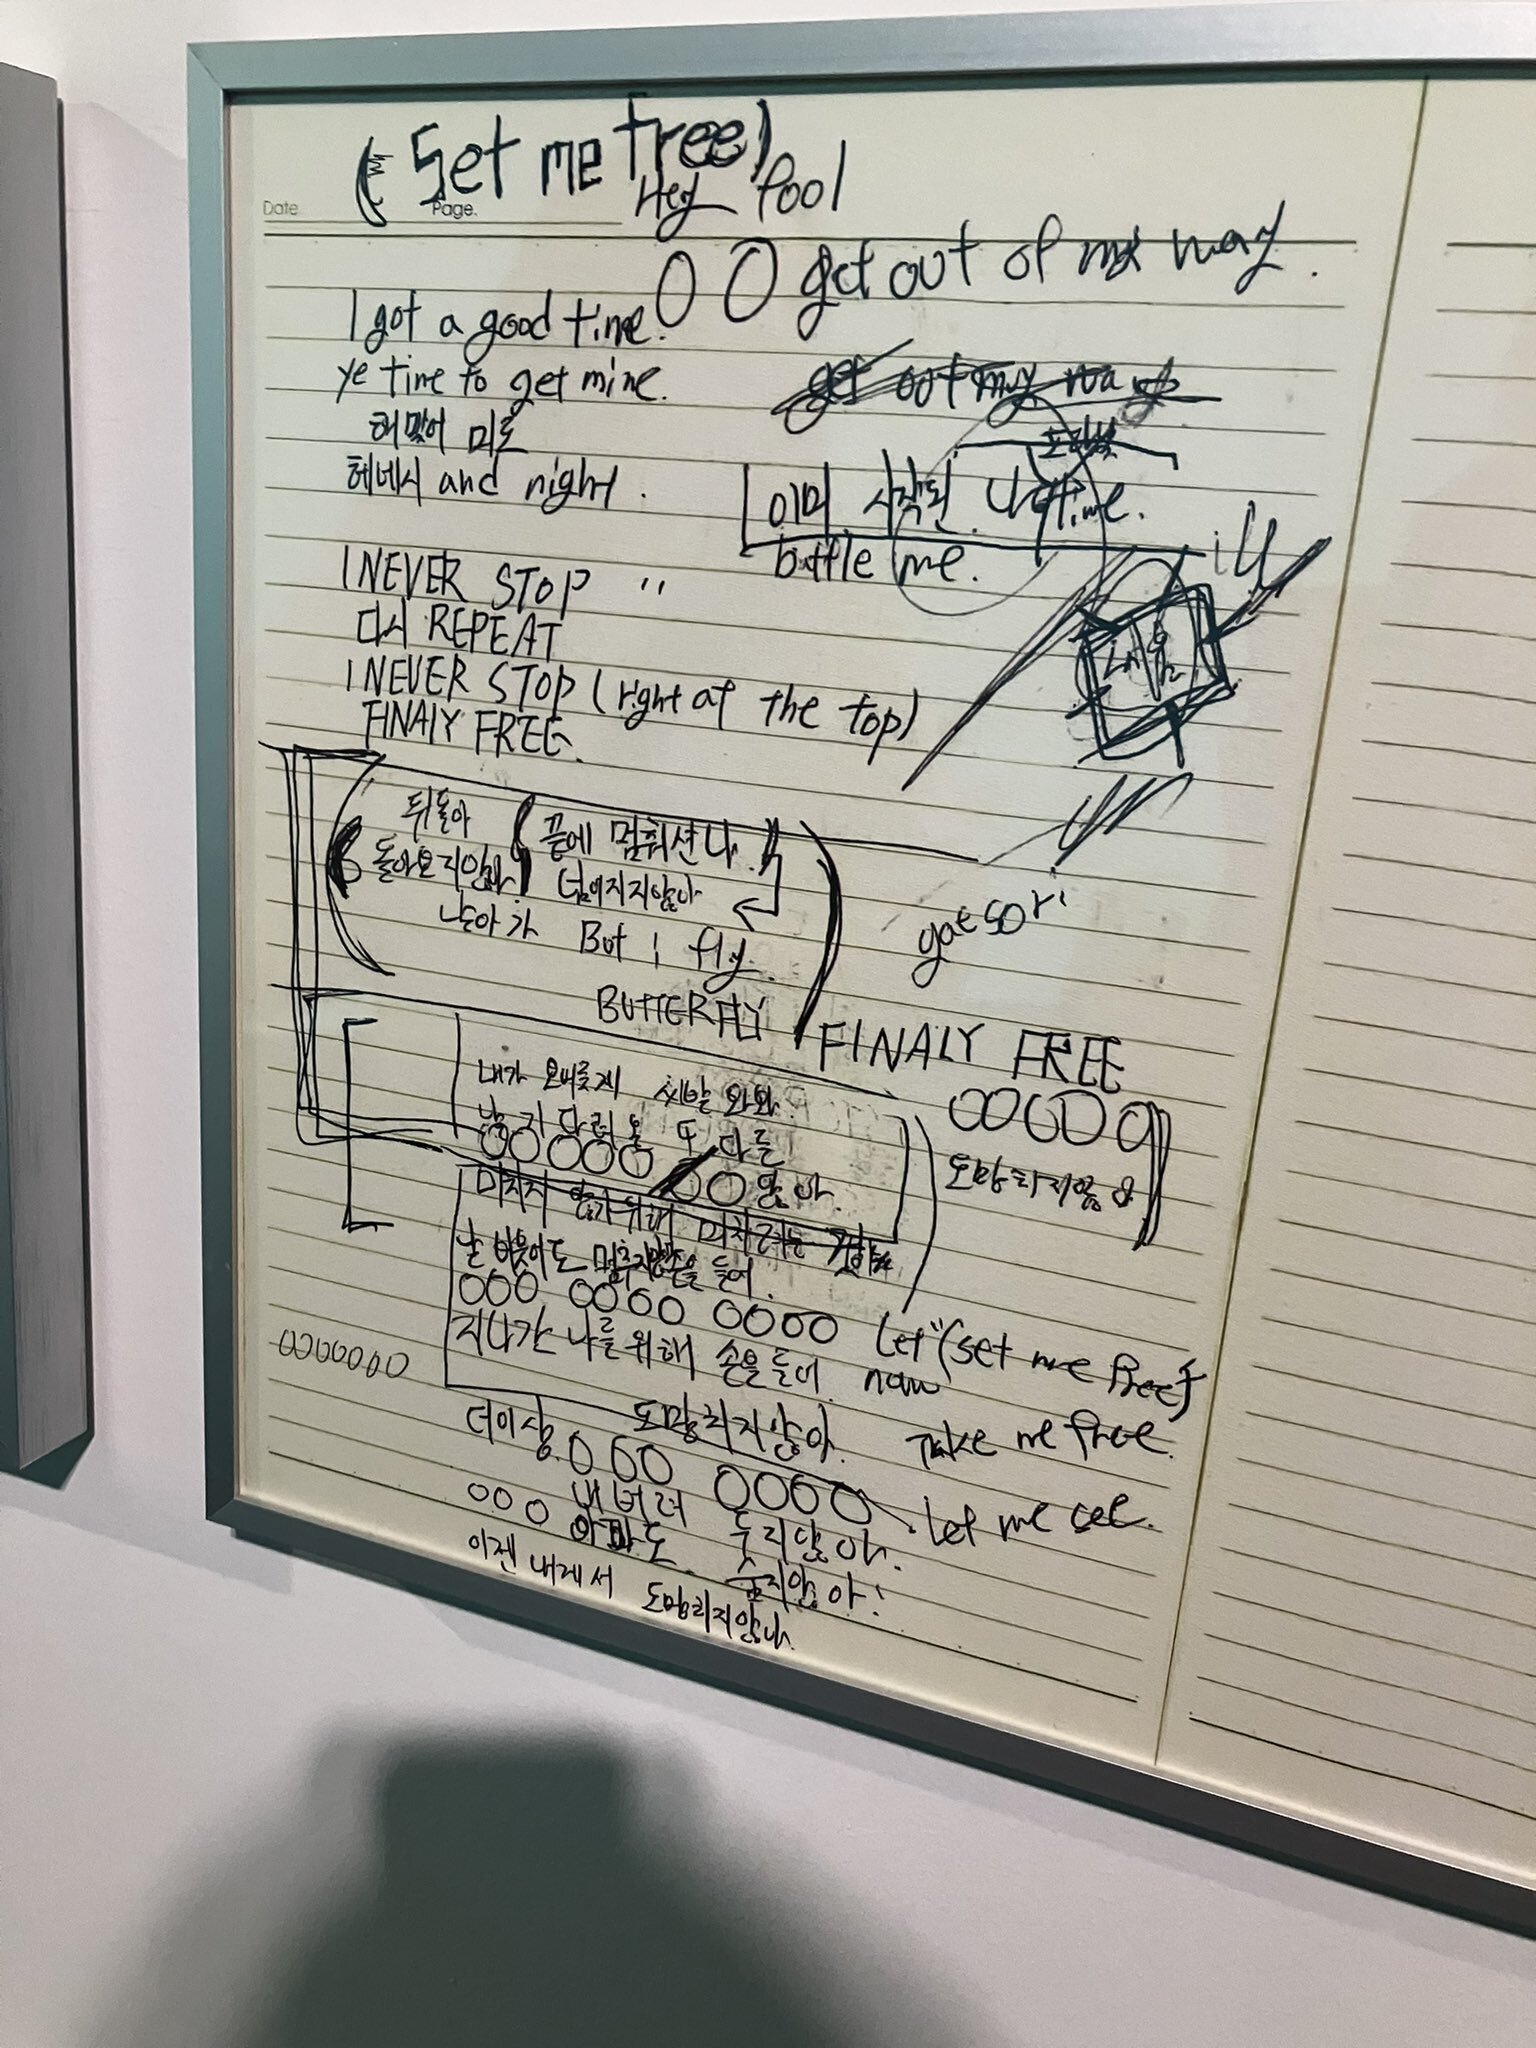 (Set me free)
Date
Page.
Hey fool
OO get out of my way.
I got a good time.
ye time to get mine.
get out my way
헤맸어 미로
헤네시 and night.
이미 시작된 나 time.
battle me.
I NEVER STOP "
다시 REPEAT
I NEVER STOP (right at the top)
FINALY FREE.
뒤돌아
돌아오지않아
끝에 멈춰선 나
넘어지지않아
날아가 But i fly.
BUTTERFLY
gaesori
FINALY FREE
OOOOO
도망치지않아
내가 오버롭게 씨발 와와
OOOOO
OO 않아
미치지 않기위해 미치려는
날 비웃어도 멈추지않 손을 들어
OOO OOOO OOOO
지나간 나를 위해 손을 들어 now
Let "(set me free)
OOOOOOO
더이상 도망치지않아
make me free.
OOO OOOO
OOO 내버려 두지않아.
Let me see.
아파도 숨지않아!
이젠 내게서 도망치지않아